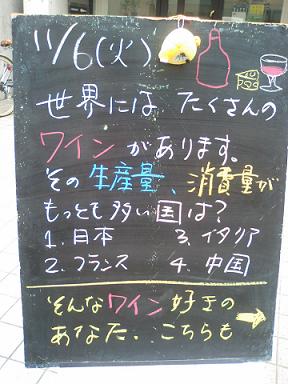 11/6(火)
世界には たくさんの
ワインがあります。
その生産量、消費量が
もっとも多い国は？
1. 日本 3. イタリア
2. フランス 4. 中国
そんなワイン好きの
あなた・・こちらも→